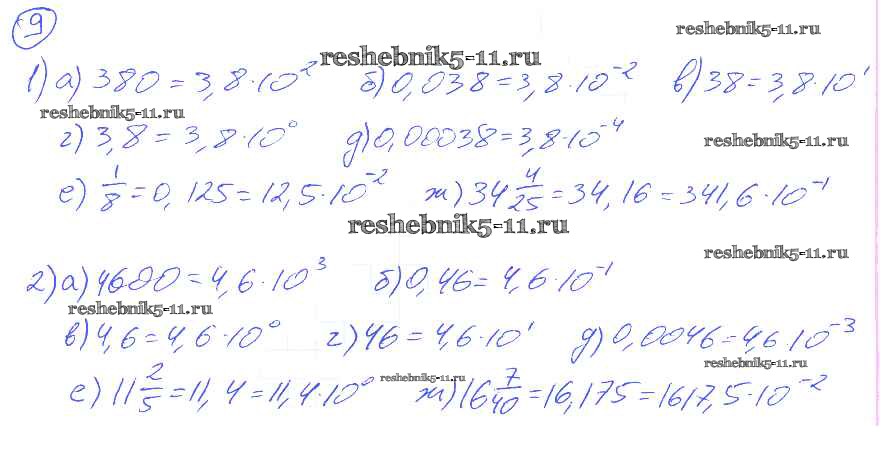 9
reshebnik5-11.ru
reshebnik5-11.ru
1) а) 380 = 3,8·10² б) 0,038 = 3,8·10⁻² в) 38 = 3,8·10¹
reshebnik5-11.ru
г) 3,8 = 3,8·10⁰ д) 0,00038 = 3,8·10⁻⁴
reshebnik5-11.ru
е) 1/8 = 0,125 = 12,5·10⁻² ж) 34 4/25 = 34,16 = 341,6·10⁻¹
reshebnik5-11.ru
reshebnik5-11.ru
2) а) 4600 = 4,6·10³ б) 0,46 = 4,6·10⁻¹
reshebnik5-11.ru
в) 4,6 = 4,6·10⁰ г) 46 = 4,6·10¹ д) 0,0046 = 4,6·10⁻³
reshebnik5-11.ru
reshebnik5-11.ru
е) 11 2/5 = 11,4 = 11,4·10⁰ ж) 16 7/40 = 16,175 = 1617,5·10⁻²